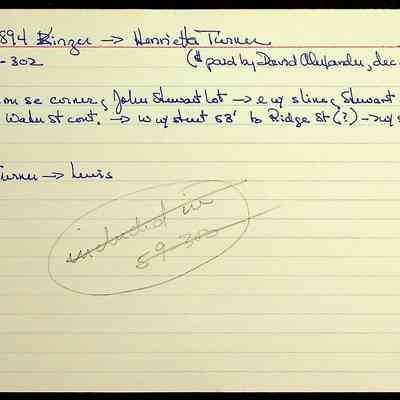 894 Kinzer → Henrietta Turner
-302 ($ paid by David Alexander, dec.
on se corner of John Stewart lot → e w/ s line of Stewart
Water St cont. → w w/ street 53' to Ridge St (?) → w/ s
Turner → Lewis
included in
59-302